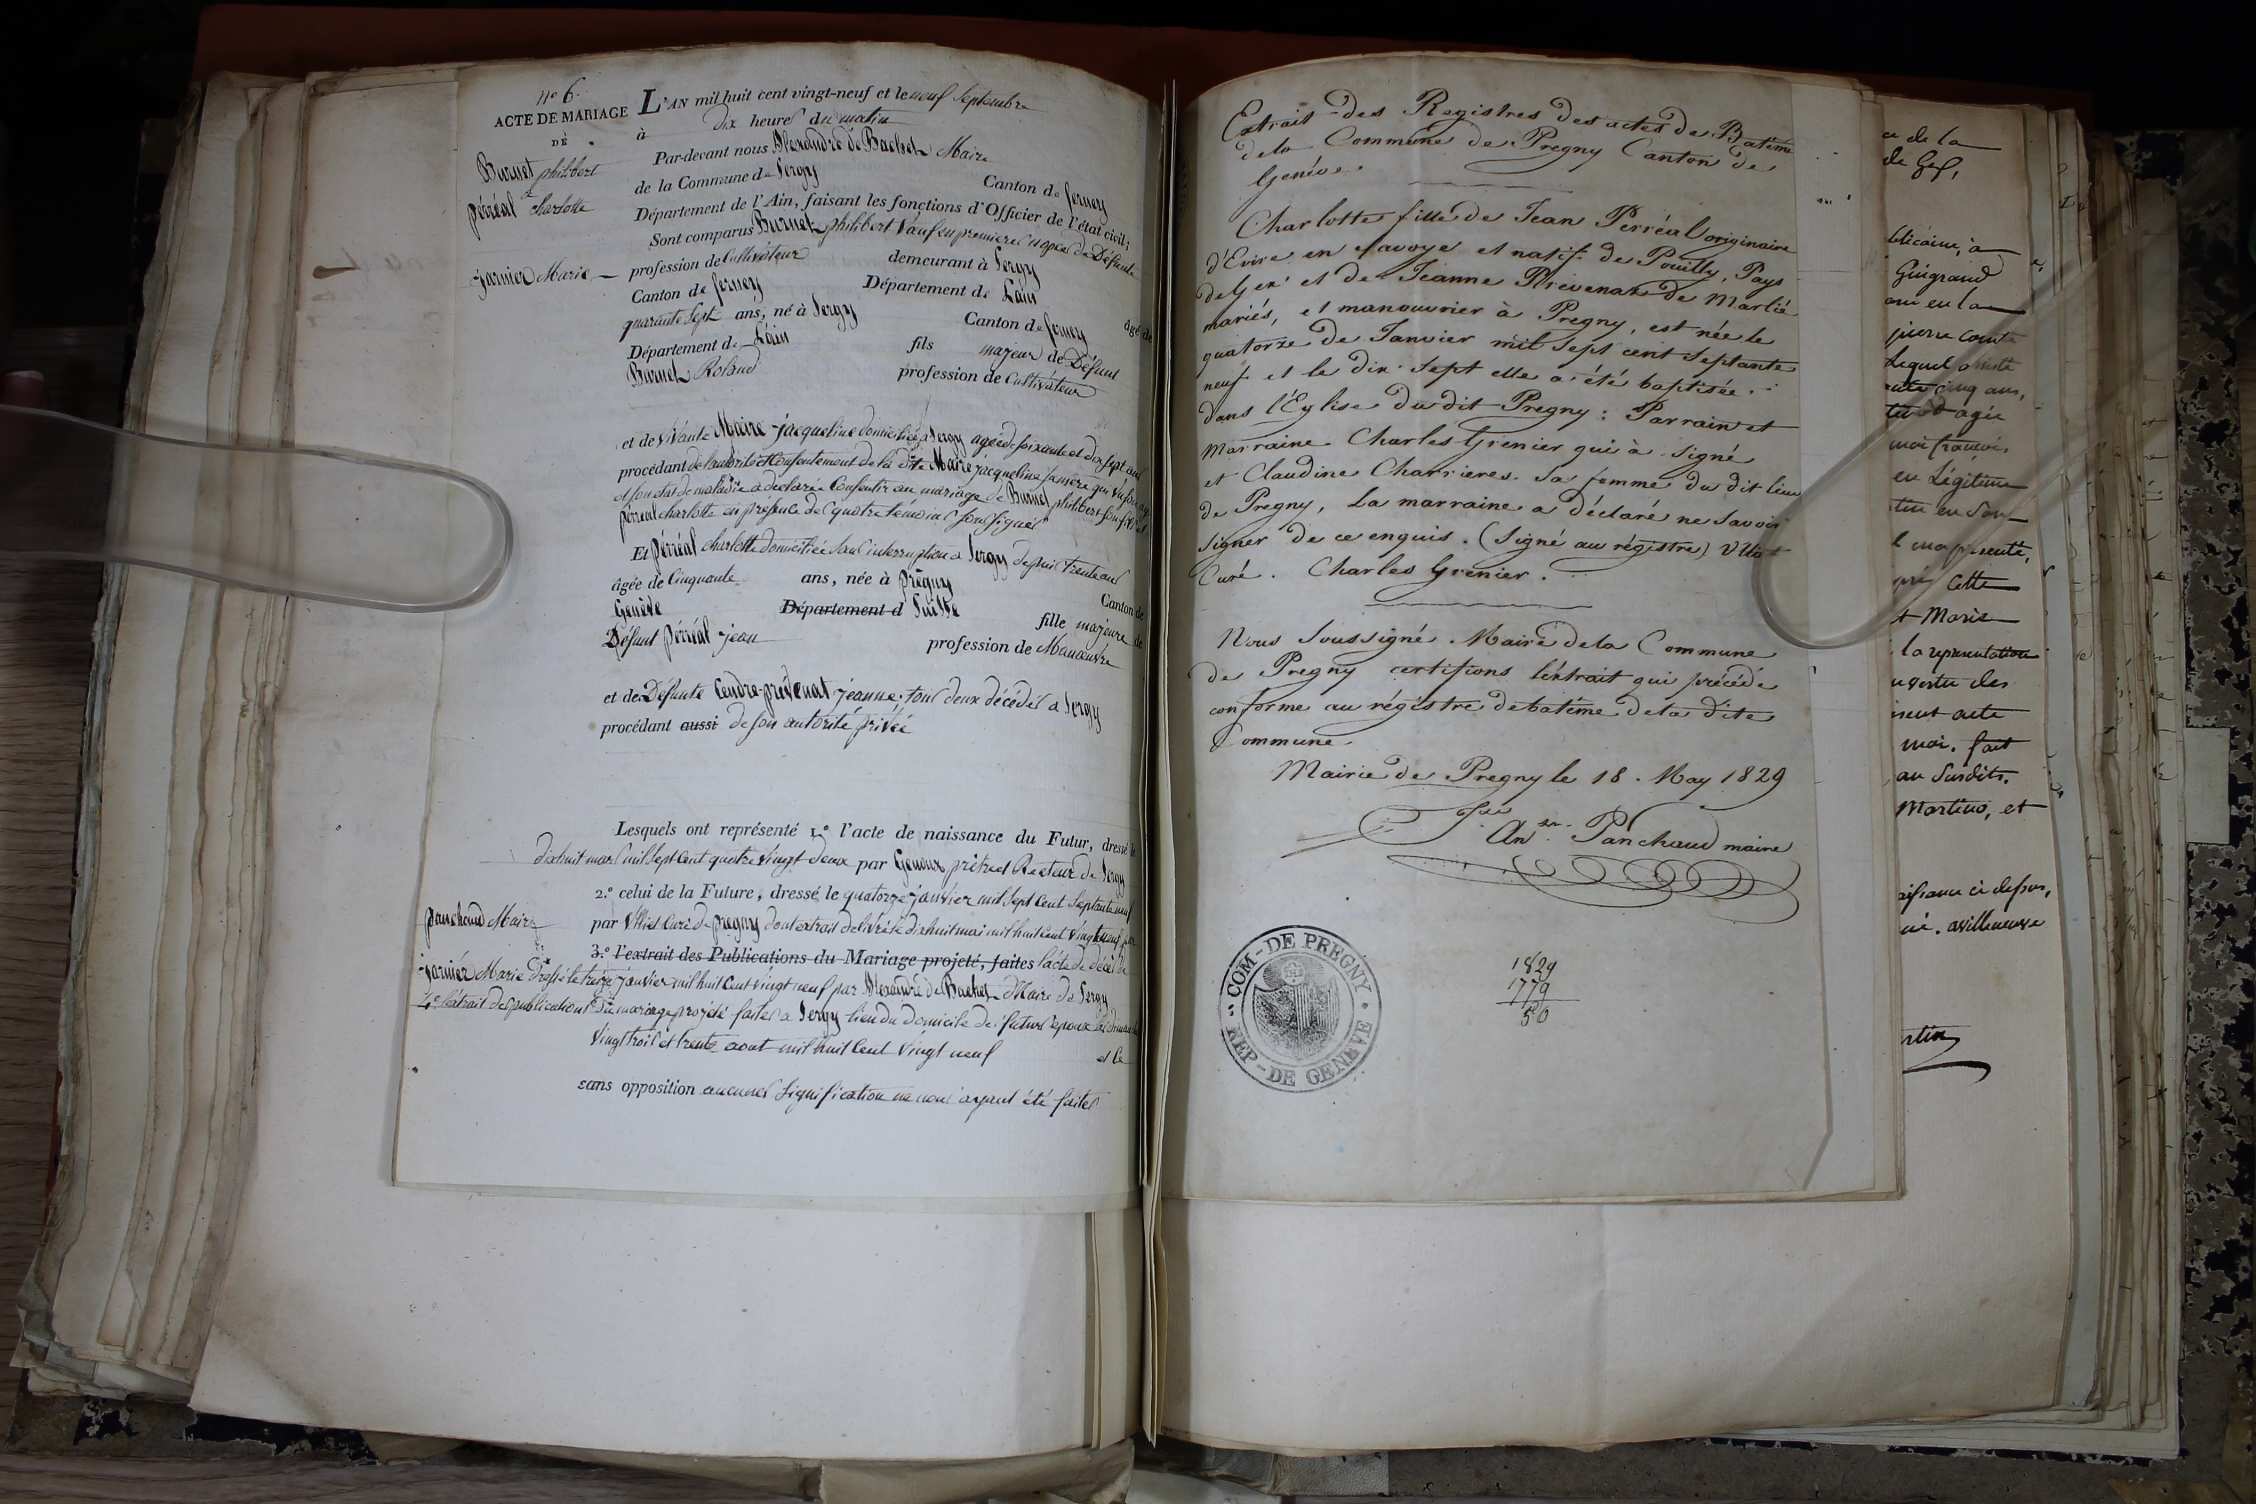 N° 6.
ACTE DE MARIAGE
DE
Burnet philibert
et
pérréal charlotte
L'AN mil huit cent vingt-neuf et le neuf Septembre
à dix heures du matin
Par-devant nous Alexandre de Bachet Maire
de la Commune de Sergy Canton de ferney
Département de l'Ain, faisant les fonctions d'Officier de l'état civil;
Sont comparus Burnet philibert Veuf en premieres noces de Défunte
garnier Marie profession de Cultivateur demeurant à Sergy
Canton de ferney Département de Lain âgé de
quarante sept ans, né à Sergy Canton de ferney
Département de Lain fils majeur de Défunt
Burnet Roland profession de Cultivateur
et de Vivante Maire jacqueline domiciliée a Sergy agée de soixante et dix sept ans
procédant de l'autorité et Consentement de la dite Maire jacqueline sa mère qui
et son etat de maladie a déclaré Consentir au mariage de Burnet philibert son fils
pérréal charlotte en présence des quatre temoins soussignés
Et pérréal charlotte domiciliée sans interruption a Sergy depuis trente ans
âgée de Cinquante ans, née à prégny Canton de
Genève Département d Suisse fille majeure de
Défunt pérréal jean profession de Manœuvre
et de Défunte Cendre-prévenat jeanne; tous deux décédés a Sergy
procédant aussi de son autorité privée
Lesquels ont représenté 1.° l'acte de naissance du Futur, dressé le
dixhuit mars mil sept cent quatre vingt deux par Genoux prêtre et Recteur de Sergy
2.° celui de la Future, dressé le quatorze janvier mil sept cent septante neuf
par Curé de pregny dont extrait delivré le dixhuit mai mil huit cent vingt neuf par
panchaud Maire 3.° l'extrait des Publications du Mariage projeté, faites l'acte de décès de
garnier Marie dressé le treize janvier mil huit cent vingt neuf par Alexandre de Bachet Maire de Sergy
4.° l'extrait des publications du mariage projeté faites a Sergy lieu du domicile des futurs epoux les dimanches
vingt trois et trente aout mil huit cent vingt neuf et le
sans opposition aucunes signification ne nous ayant été faites
Extrait des Registres des actes de Batême
de la Commune de Pregny Canton de
Genève.
Charlotte fille de Jean Perréal originaire
d'Evire en savoye et natif de Pouilly, Pays
de Gex et de Jeanne Prévenat de Marlié
mariés, et manouvrier à Pregny, est née le
quatorze de Janvier mil sept cent septante
neuf et le dix-sept elle a été baptisée
dans l'Eglise du dit Pregny: Parrain et
marraine Charles Grenier qui à signé
et Claudine Charrieres. Sa femme du dit lieu
de Pregny, La marraine a déclaré ne savoir
signer de ce enquis. (Signé au régistre)
Curé. Charles Grenier.
Nous Soussigné Maire de la Commune
de Pregny certifions l'éxtrait qui précéde
conforme au régistre de batême de la dite
Commune
Mairie de Pregny le 18 May 1829
Panchaud maire
COM-DE PREGNY
REP-DE GENEVE
1829
1779
50
ce de la
de Gex,
à
Guigrand
en la
Lequel
cinq ans,
agée
en Légitime
cette
Marie
la representation
acte
moi. fait
au Susdits.
Martine, et
ci dessus,